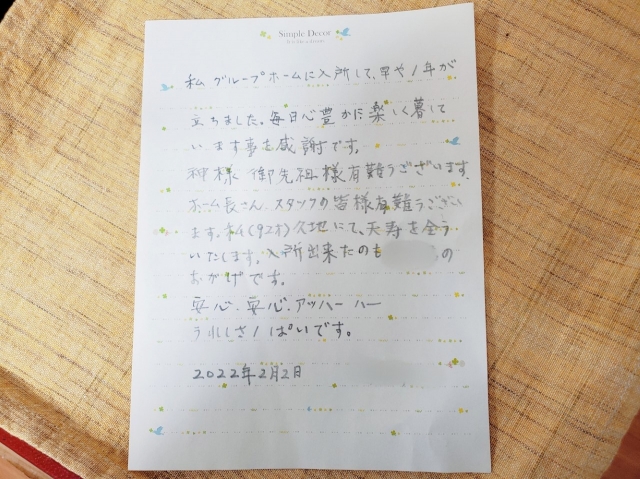 Sunple Decor
私 グループホームに入所して、早や1年が
立ちました。毎日心豊かに楽しく暮して
います事を感謝です。
神様 御先祖様有難うございます。
ホーム長さん、スタッフの皆様有難うござい
ます。私(92才)久地にて、天寿を全う
いたします。入所出来たのも の
おかげです。
安心、安心、アッハーハー
うれしさ1ぱいです。
2022年2月2日